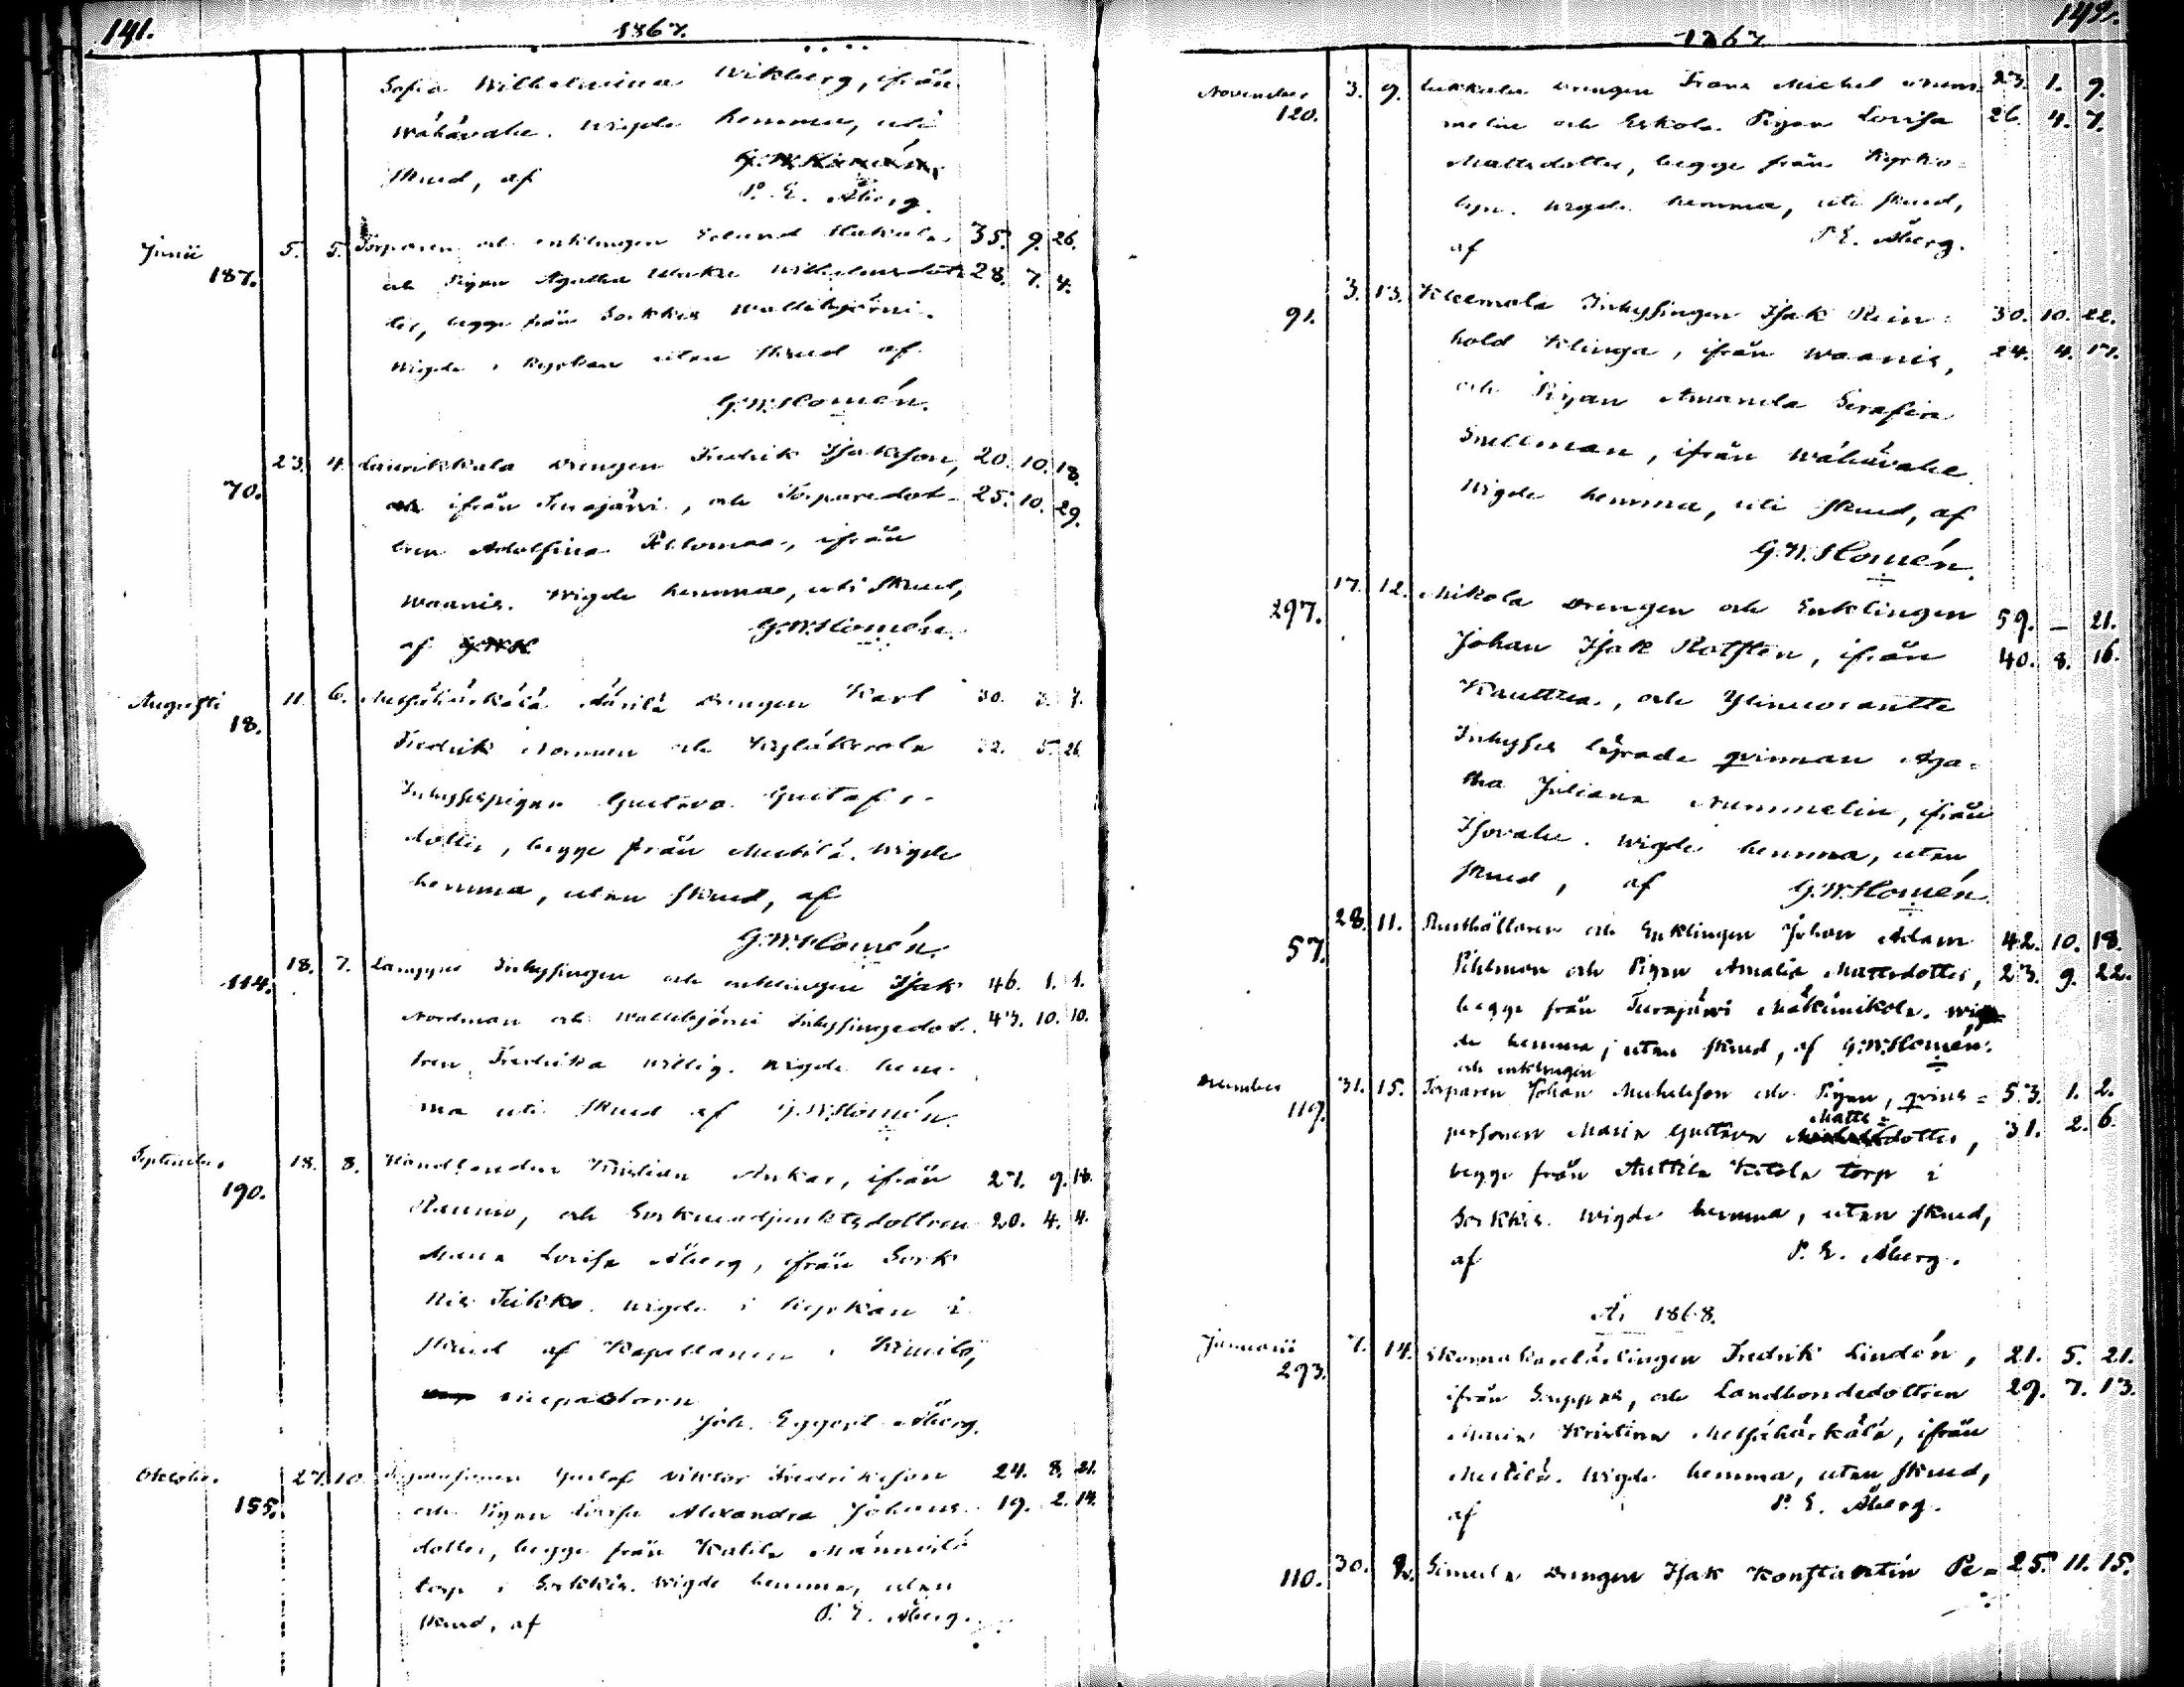 141.
1867.
Sofia Wilhelmina Wikberg, ifrån
Wähävahe. Wigde hemma, uti
skrud, af G. W. Homén,
P. E. Åberg.
Junii 5. 5. Torparen och enklingen Erlund 35. 9. 26.
187. och Pigan Agatha Ulrika Wilhelmsdot 28. 7. 4.
ter, begge från Sorkkis
Wigde i kyrkan utan skrud af
G.W.Homén.
23. 4. Laurikkala Drengen Fredrik Isaksson, 20. 10. 18.
70. ifrån Turajärvi, och Torparedot- 25. 10. 29.
tren Adolfina, ifrån
Waanis. Wigde hemma, uti skrud,
af G.W.Homén.
Augusti 11. 6. Drengen Karl 30.
18. Fredrik och
Inhysespigan Gustava Gustafs-
dotter, begge från Mestilä. Wigde
hemma, utan skrud, af
G.W.Homén.
18. 7. Inhysingen och enklingen Isak 46. 1. 1.
114. Nordman och Inhysingedot- 43. 10. 10.
tren Fredrika Willig. Wigde hem-
ma uti skrud af G.W.Homén.
September 18. 8. Handlanden Kristian Ankar, ifrån 27. 9. 18.
190. Raumo, och Sockneadjunktsdottren 20. 4. 4.
Maria Lovisa Åberg, ifrån Sork
kis. Wigde i kyrkan i
skrud af Kapellanen i Kimito,
vicepastorn
Joh. Eggert Åberg.
Oktober 27. 10. Gustaf Viktor Fredriksson 24. 8. 21.
155. och Pigan Lovisa Alexandra Johans- 19. 2. 14.
dotter, begge från Katila Männistö
torp i Sorkkis. Wigde hemma, utan
skrud, af P. E. Åberg.
142.
1867
November 3. 9. Drengen Frans Michel Num- 23. 1. 9.
120. melin och Eskola Pigan Lovisa 26. 4. 7.
Mattsdotter, begge från Kyrko-
byn. Wigde hemma, uti skrud,
af P. E. Åberg.
3. 13. Kleemola Inhysingen Isak Rein- 30. 10. 22.
91. hold Klinga, ifrån Waanis, 24. 4. 17.
och Pigan Amanda Serafia
Snellman, ifrån Wähävahe.
Wigde hemma, uti skrud, af
G.W.Homén.
17. 12. Mikola Drengen och Enklingen 59. — 21.
297. Johan Isak Rotsten, ifrån 40. 8. 16.
Kauttua, och
Inhyses lägrade qvinnan Aga-
tha Juliana Nummelin, ifrån
Isovahe. Wigde hemma, utan
skrud, af G.W.Homén.
28. 11. Rusthållaren och Enklingen Johan Adam 42. 10. 18.
57. Pihlman och Pigan Amalia Mattsdotter, 23. 9. 22.
begge från Turajärvi Mäkimikola. Wig
de hemma, utan skrud, af G.W.Homén.
och enklingen
December 31. 15. Torparen Johan Michelsson och Pigan, qvins- 53. 1. 2.
119. personen Maria Gustava Mattsdotter, 31. 2. 6.
begge från Anttila Ketola torp i
Sorkkis. Wigde hemma, utan skrud,
af P. E. Åberg.
År 1868.
Januarii 7. 14. Skomakarelärlingen Fredrik Lindén, 21. 5. 21.
293. ifrån, och Landbondedottren 29. 7. 13.
Maria Kristina Metsähärkälä, ifrån
Mestilä. Wigde hemma, utan skrud,
af P. E. Åberg.
110. 30. Simula Drengen Isak Konstantin Pe- 25. 11. 15.